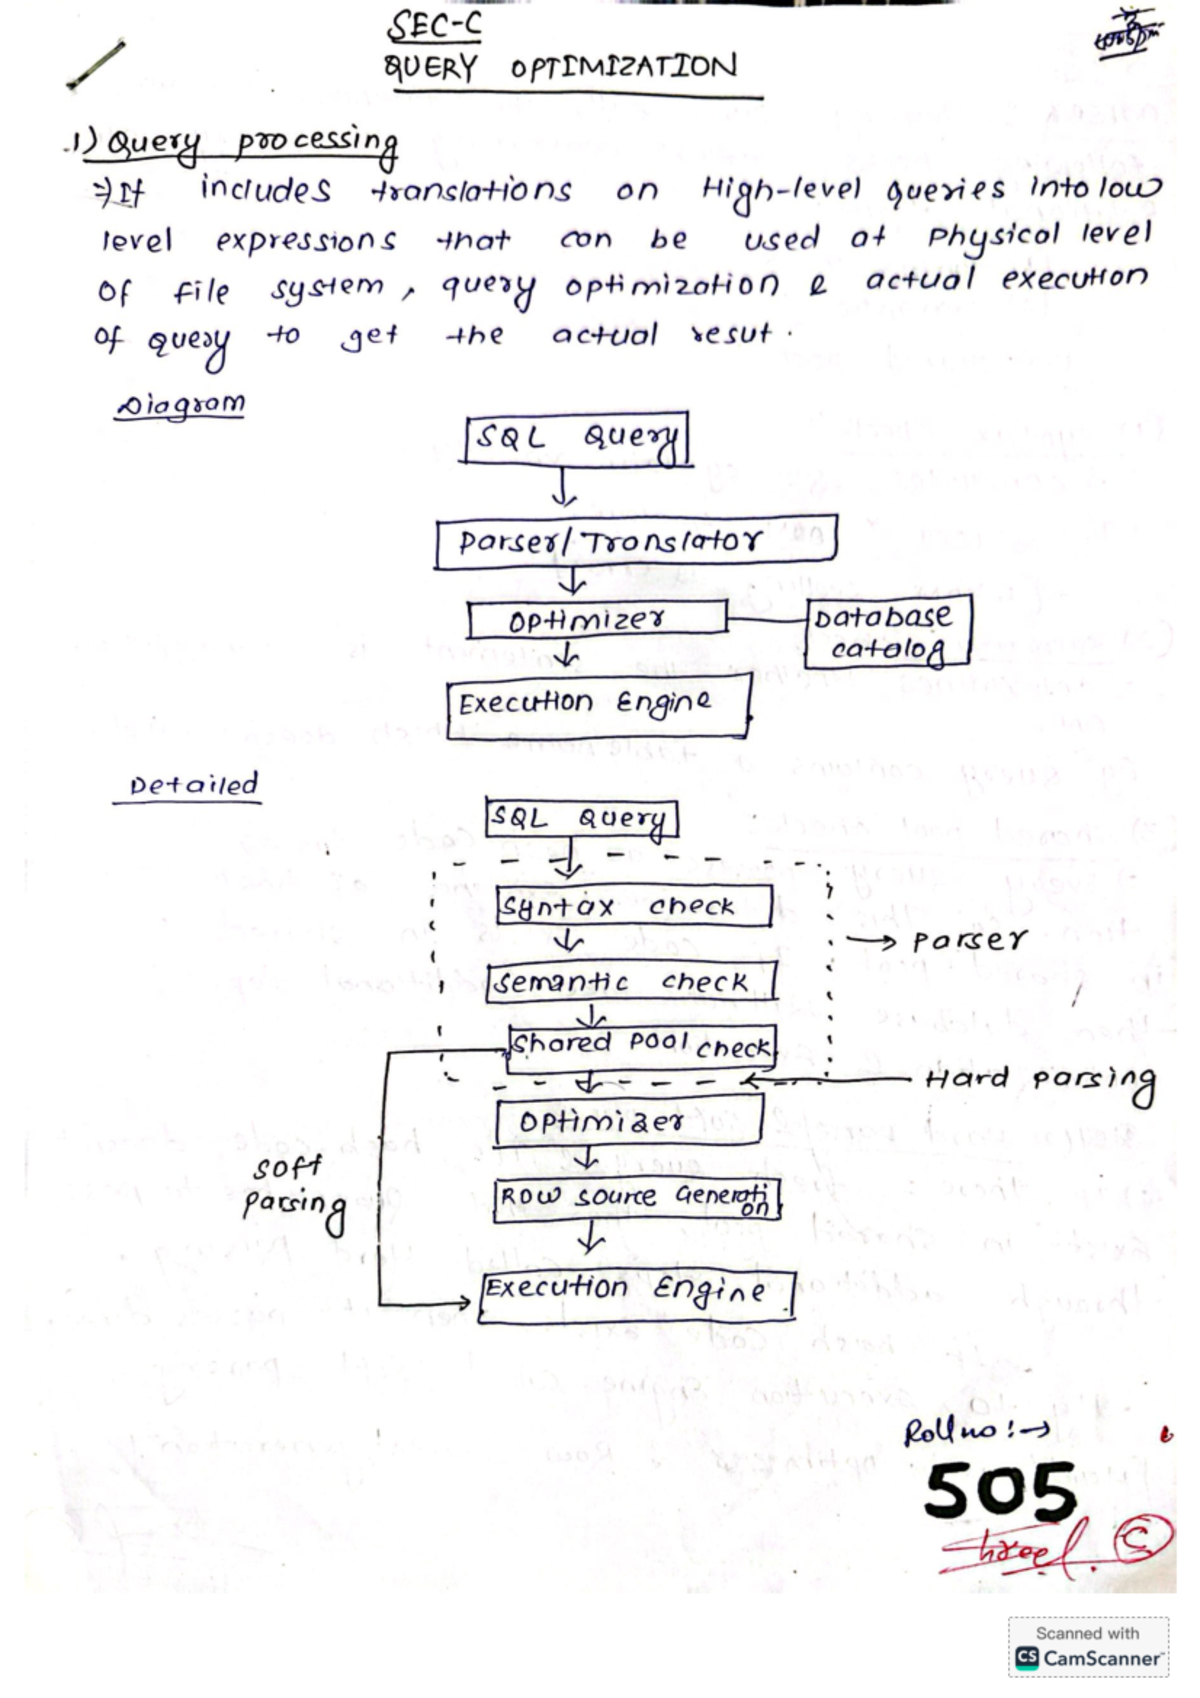 SEC-C
QUERY OPTIMIZATION
1) Query processing
⇒ It includes translations on High-level queries into low
level expressions that can be used at Physical level
of file system, query optimization & actual execution
of query to get the actual resut.
Diagram
SQL Query
Parser/Translator
Optimizer
Database
catalog
Execution Engine
Detailed
SQL Query
Syntax check
→ Parser
Semantic check
Shared Pool check
Hard parsing
Optimizer
Soft
Parsing
Row source Generati
on
Execution Engine
Roll no :→
505
Scanned with
CS CamScanner